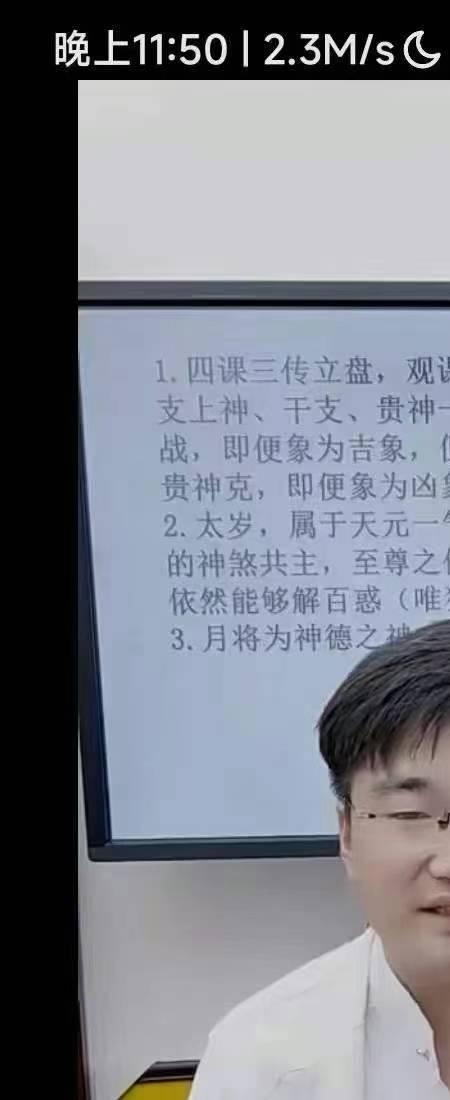 晚上11:50 | 2.3M/s
1.四课三传立盘，观课
支上神、干支、贵神一
战，即便象为吉象，但
贵神克，即便象为凶象
2.太岁，属于天元一气
的神煞共主，至尊之
依然能够解百惑（唯
3.月将为神德之神